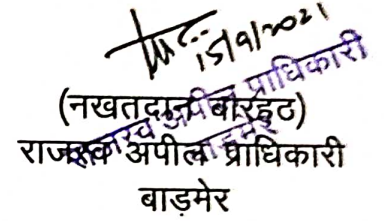 15/9/2021
(नखतदान बारहठ)
राजस्व अपील प्राधिकारी
बाड़मेर
राजस्व अपील प्राधिकारी
बाड़मेर